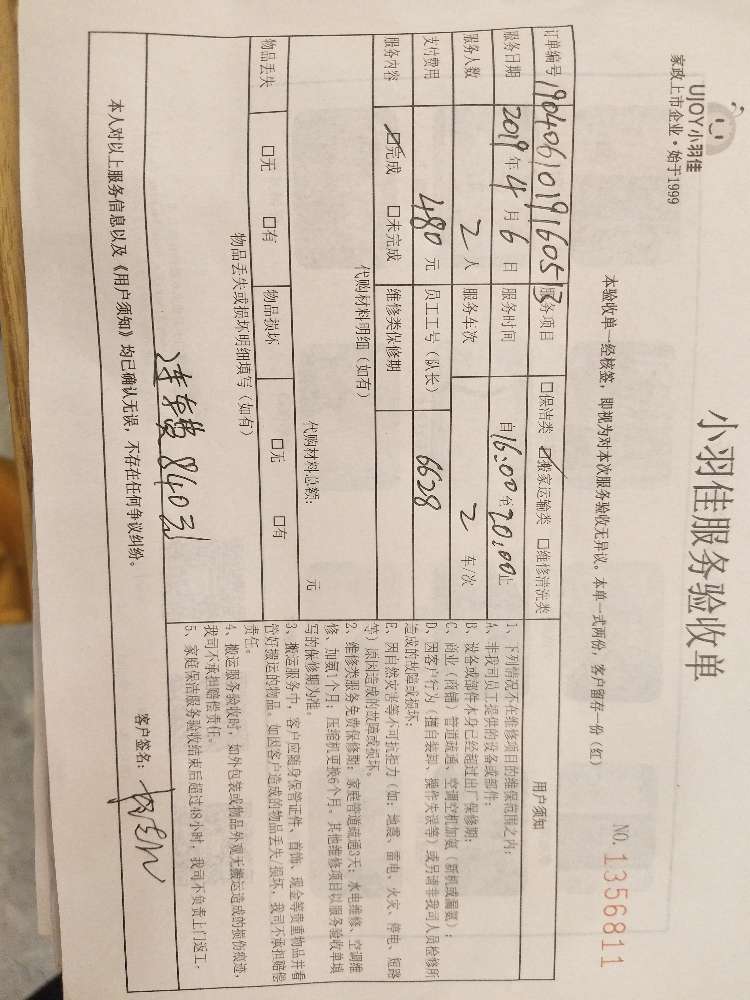 UJOY小羽佳
家政上市企业·始于1999
小羽佳服务验收单
本验收单一经核签，即视为对本次服务验收无异议。本单一式两份，客户留存一份（红）
NO. 1356811
订单编号 19040610191605
服务项目 □保洁类 ☑搬家运输类 □维修清洗类
服务日期 2019年4月6日
服务时间 自16:00至20:00止
服务人数 2人
服务车次 2 车/次
支付费用 480元
员工工号（队长） 6628
服务内容 ☑完成 □未完成
维修类保修期
代购材料明细（如有）
代购材料总额： 元
物品丢失 □无 □有
物品损坏 □无 □有
物品丢失或损坏明细填写（如有）
连车费840元
本人对以上服务信息以及《用户须知》均已确认无误，不存在任何争议纠纷。
客户签名：
用户须知
1、下列情况不在维修项目的维保范围之内：
A、非我司员工提供的设备或部件；
B、设备或部件本身已经超过出厂保修期；
C、商业（商铺）管道疏通、空调空机加氨（新机或漏氨）；
D、因客户行为（擅自装卸、操作失误等）或另请非我司人员检修所
造成的故障或损坏；
E、因自然灾害等不可抗拒力（如：地震、雷电、火灾、停电、短路
等）原因造成的故障或损坏。
2、维修类服务免费保修期：家庭管道疏通3天；水电维修、空调维
修、加氨1个月；压缩机更换6个月。其他维修项目以服务验收单填
写的保修期为准。
3、搬运服务中，客户应随身保管证件、首饰、现金等贵重物品并看
管好搬运的物品。如因客户造成的物品丢失/损坏，我司不承担赔偿
责任。
4、搬运服务验收时，如外包装或物品外观无搬运造成的损伤痕迹，
我司不承担赔偿责任。
5、家庭保洁服务验收结束后超过48小时，我司不负责上门返工。